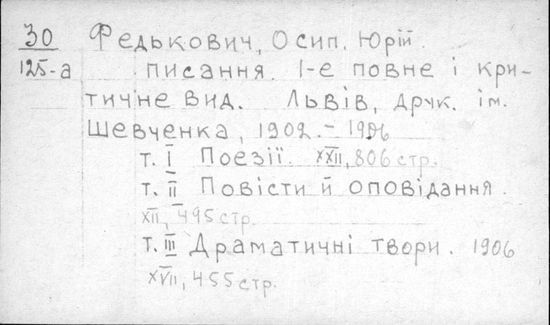 30 Федькович, Осип. Юрій.
125-а писання. І-е повне і кри-
тичне вид. Львів, друк. ім.
Шевченка, 1902.-1906
т. I Поезії. XXII, 806 стр.
т. II Повісти й оповідання.
XII, 495 стр.
т. III Драматичні твори. 1906
XVII, 455 стр.